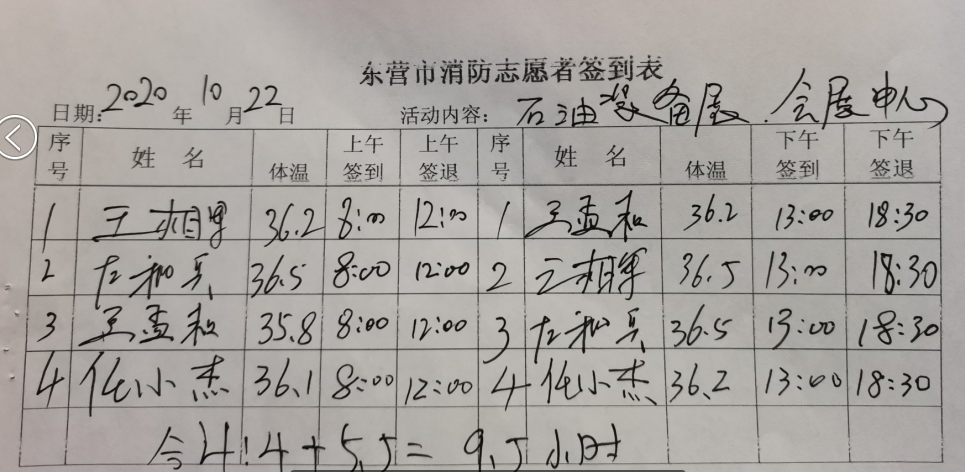 东营市消防志愿者签到表
日期:2020年10月22日 活动内容: 石油装备展.会展中心
序号 姓名 体温 上午签到 上午签退 序号 姓名 体温 下午签到 下午签退
1 王相军 36.2 8:00 12:00 1 王孟和 36.2 13:00 18:30
2 左和兵 36.5 8:00 12:00 2 王相军 36.5 13:00 18:30
3 王孟和 35.8 8:00 12:00 3 左和兵 36.5 13:00 18:30
4 化小杰 36.1 8:00 12:00 4 化小杰 36.2 13:00 18:30
合计:4+5.5=9.5小时